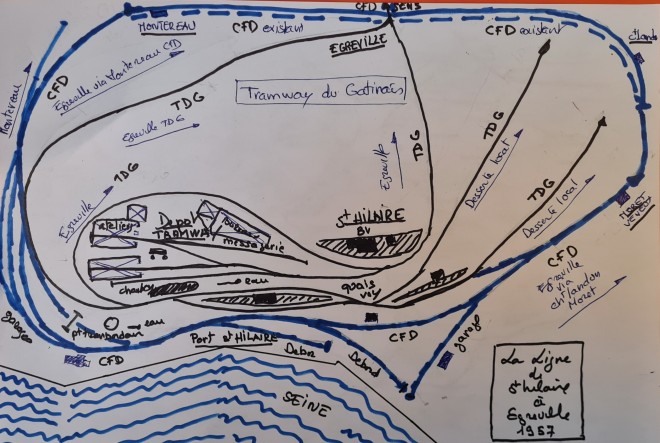 CFD SENS
MONTEREAU
CFD existant
EGREVILLE
CFD existant
CFD
Egreville via Montereau CFD
Montereau
TDG
Tramway du Gatinais
Egreville TDG
TDG
Egreville
TDG
Desserte local
TDG
Desserte local
MORET
TDG
Egreville
Ateliers
Depot
TRAMWAY
messagerie
St HILAIRE
BV
CFD
Egreville
via
Moret
charbon
eau
quais
voy
garages
eau
CFD
Port St HILAIRE
Debor
Debord
CFD
garage
SEINE
La Ligne
de
St hilaire
à
Egreville
1957